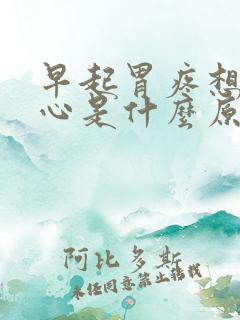 早起胃疼想
心是什麽原
阿比多斯
未经同意禁止转载